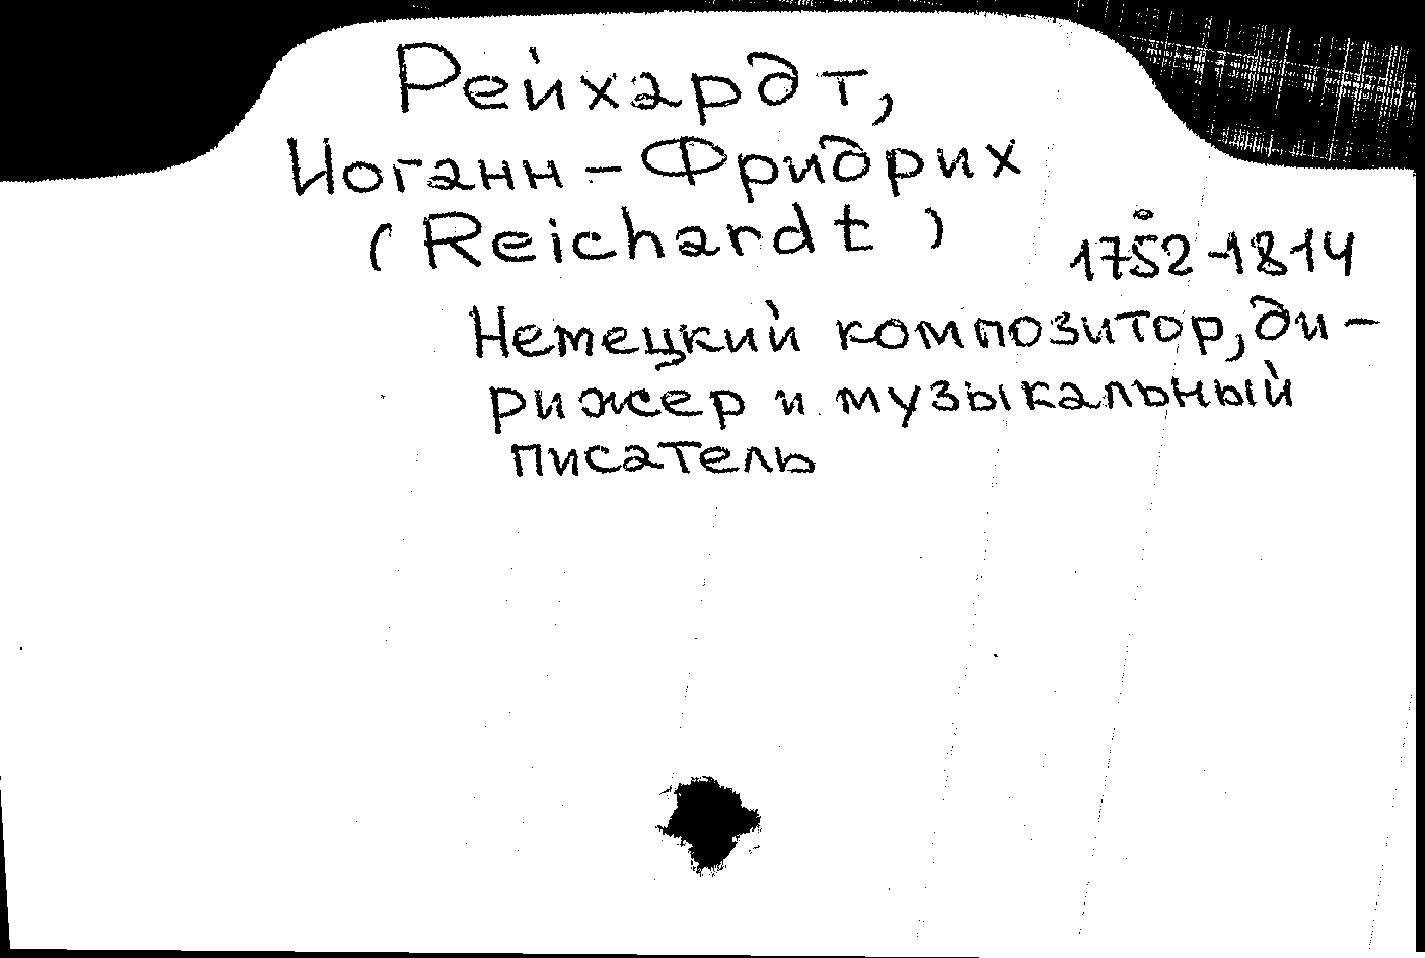 Рейхардт,
Иоганн-Фридрих
(Reichardt)
1752-1814
Немецкий композитор, ди-
рижер и музыкальный
писатель